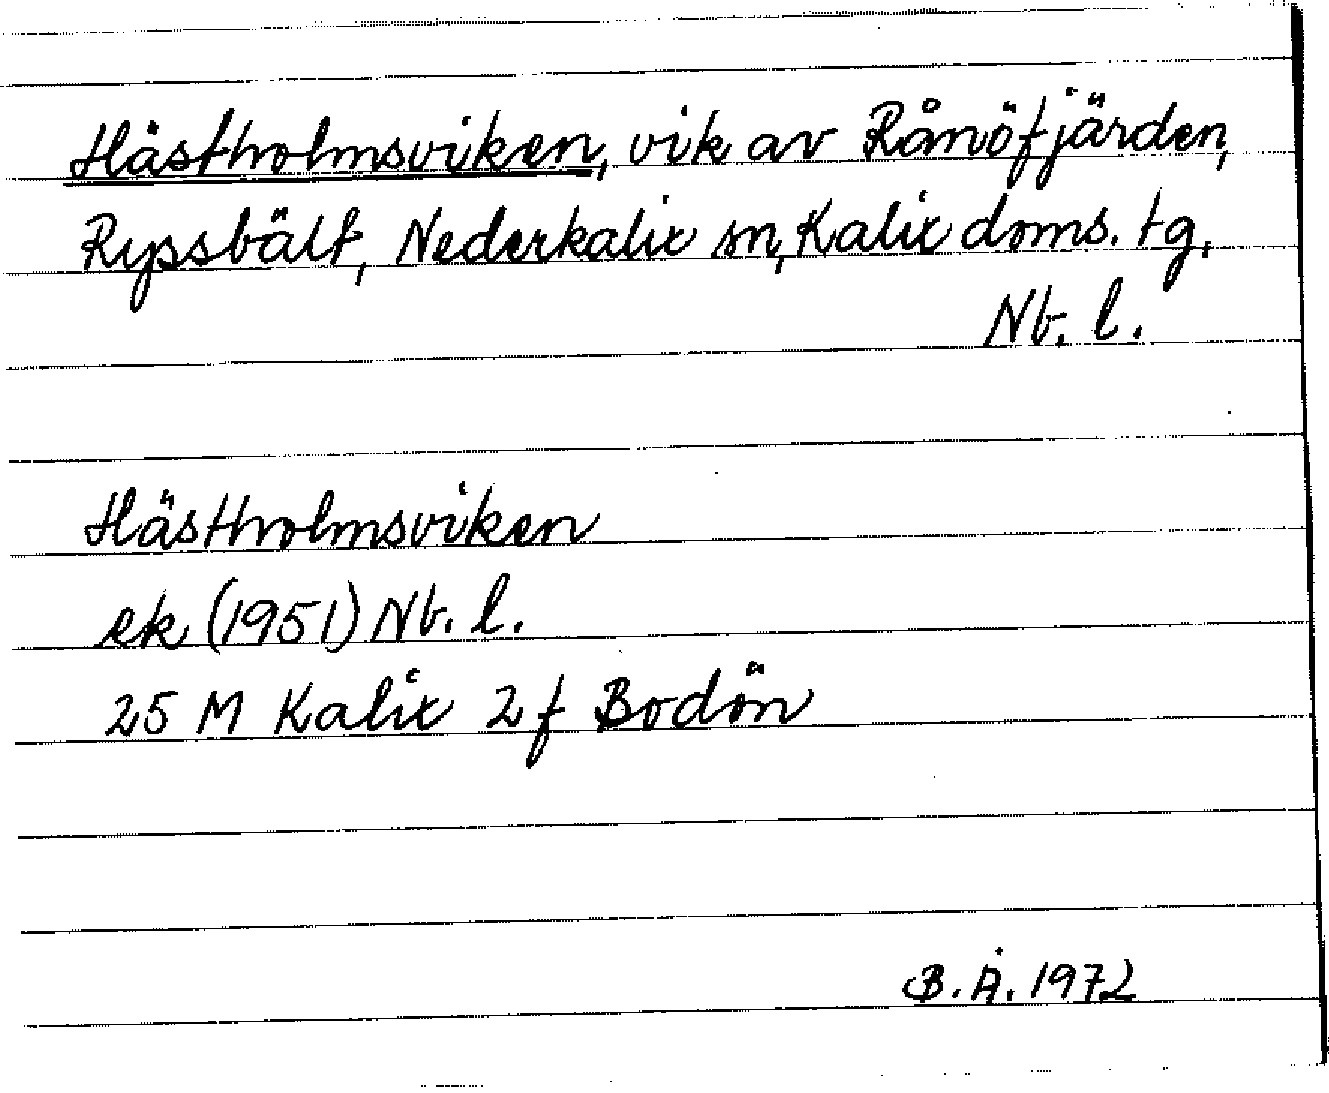 Hästholmsviken, vik av Rånöfjärden,
Ryssbält, Nederkalix sn, Kalix doms. tg.
Nb. l.
Hästholmsviken
ek (1951) Nb. l.
25 M Kalix 2f Bodön
B. Å. 1972